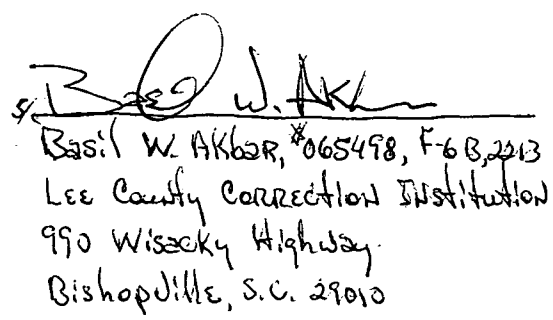 s/ Basil W. Akbar
Basil W. AKbaR, #065498, F-6B, 2213
LEE County CORRECtION INStitutION
990 Wisacky Highway
BishopVille, S.C. 29010